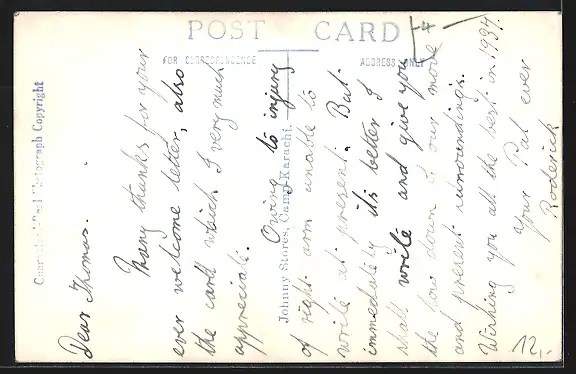 POST CARD
FOR CORRESPONDENCE
ADDRESS ONLY
Photograph Copyright
Johnny Stores, Camp Karachi.
Dear Thomas.
Many thanks for your
ever welcome letter, also
the card which I very much
appreciate.
Owing to injury
of right arm unable to
write at present. But
immediatly its better I
shall write and give you
the low down of our move
and present surroundings.
Wishing you all the best in 1937.
Your Pal ever
Roderick
12,-